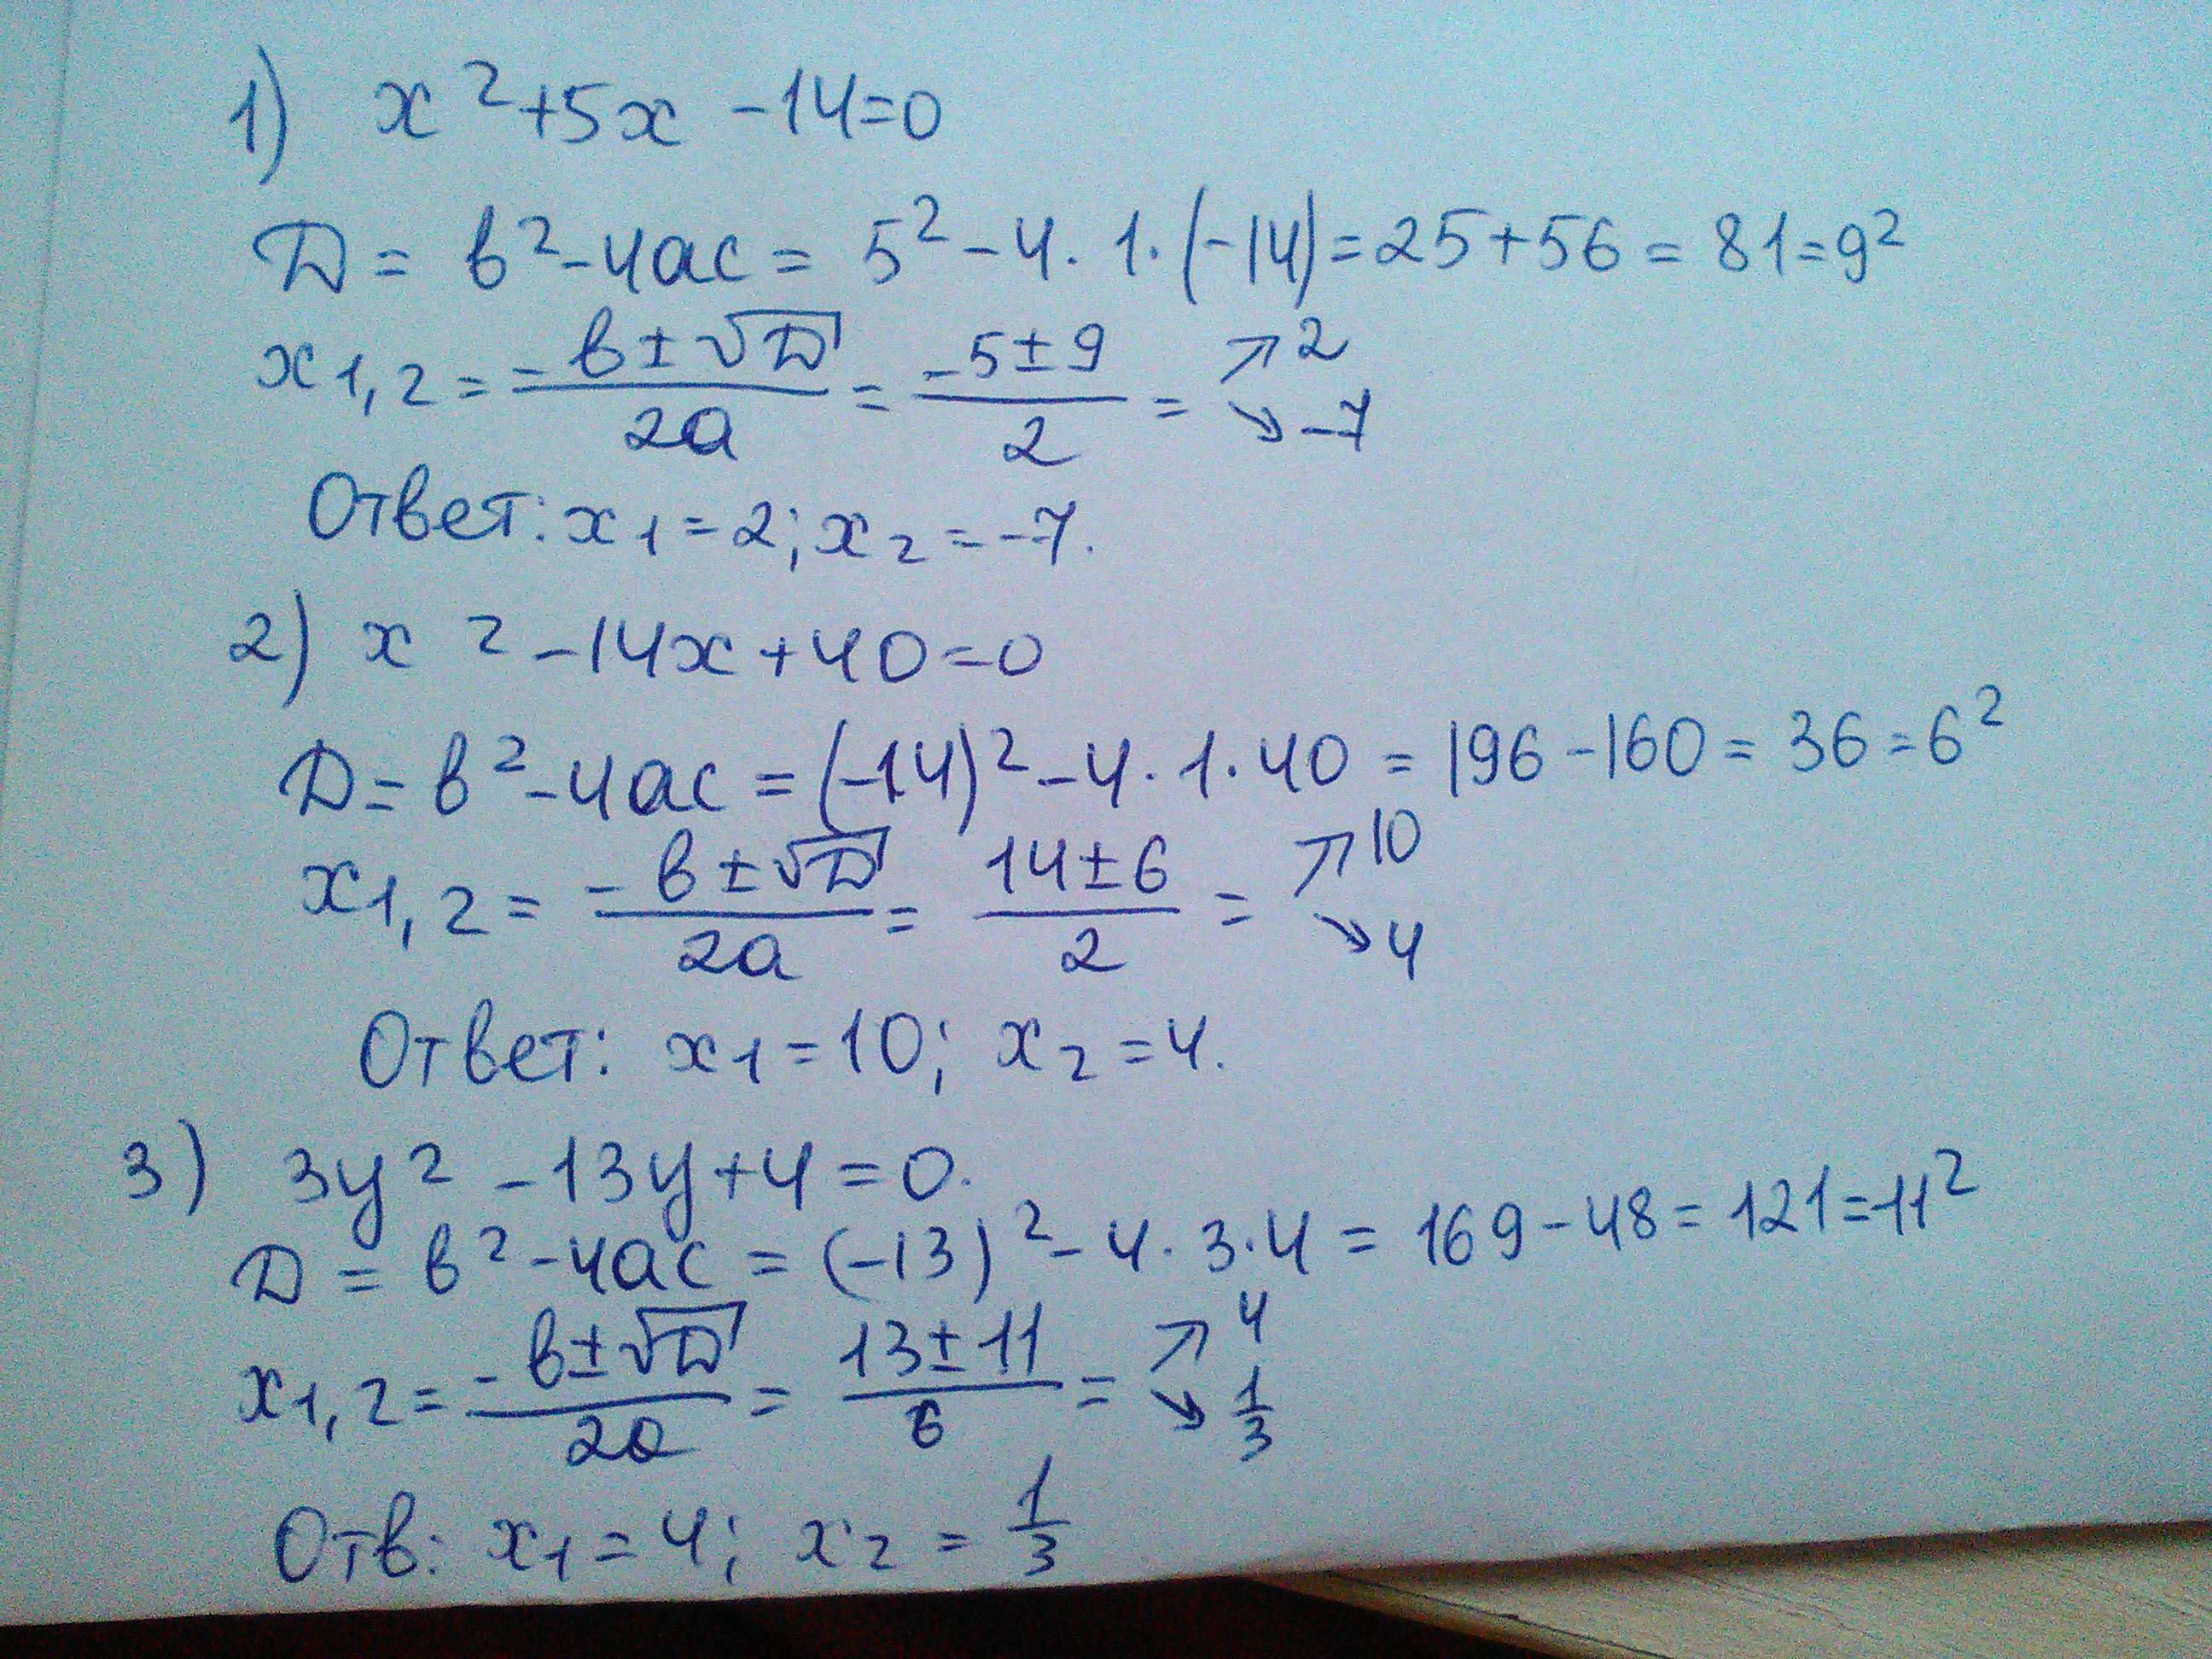 1) x²+5x-14=0
D = b²-4ac = 5²-4·1·(-14)=25+56=81=9²
x1,2 = (-b±√D)/2a = (-5±9)/2 = ↗2 ↘-7
Ответ: x1=2; x2=-7.
2) x²-14x+40=0
D=b²-4ac=(-14)²-4·1·40=196-160=36=6²
x1,2 = (-b±√D)/2a = (14±6)/2 = ↗10 ↘4
Ответ: x1=10; x2=4.
3) 3y²-13y+4=0.
D = b²-4ac=(-13)²-4·3·4=169-48=121=11²
x1,2 = (-b±√D)/2a = (13±11)/6 = ↗4 ↘1/3
Отв: x1=4; x2=1/3